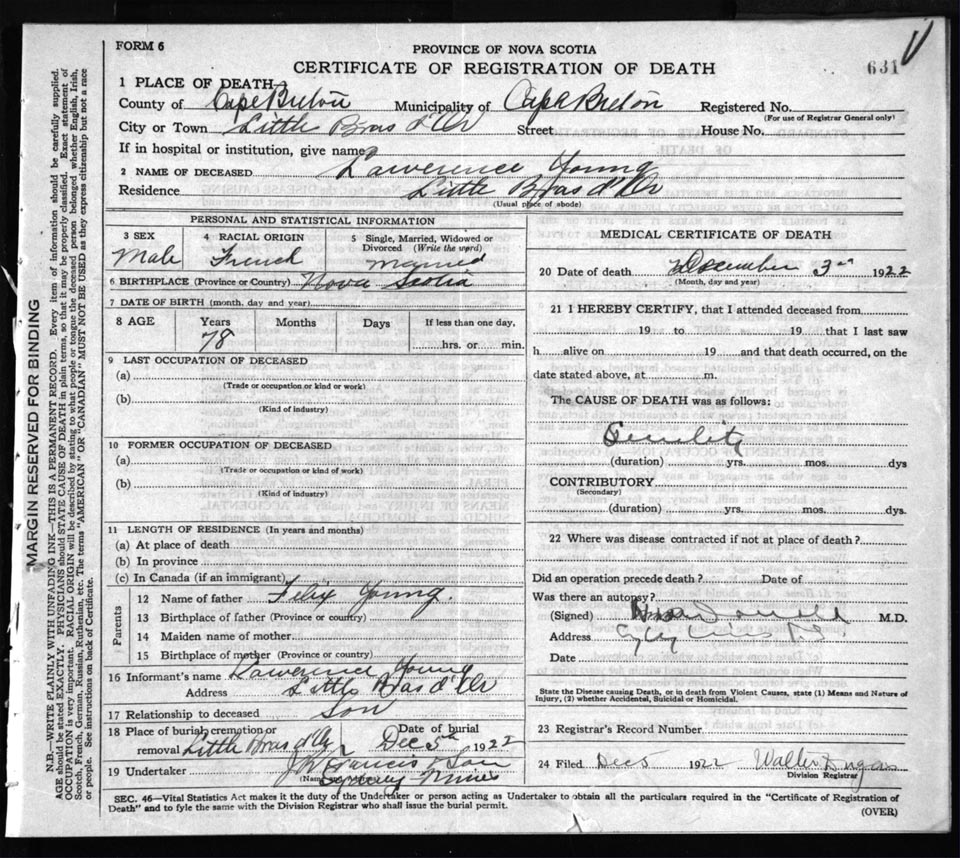 FORM 6
PROVINCE OF NOVA SCOTIA
CERTIFICATE OF REGISTRATION OF DEATH
631
1 PLACE OF DEATH
County of Cape Breton Municipality of Cape Breton Registered No.
(For use of Registrar General only)
City or Town Little Bras d'Or Street House No.
If in hospital or institution, give name
2 NAME OF DECEASED Lawerence Young
Residence Little Bras d'Or
(Usual place of abode)
PERSONAL AND STATISTICAL INFORMATION
3 SEX 4 RACIAL ORIGIN 5 Single, Married, Widowed or Divorced (Write the word)
Male French Married
6 BIRTHPLACE (Province or Country) Nova Scotia
7 DATE OF BIRTH (month, day and year)
8 AGE Years Months Days If less than one day,
78 hrs. or min.
9 LAST OCCUPATION OF DECEASED
(a)
(Trade or occupation or kind of work)
(b)
(Kind of industry)
10 FORMER OCCUPATION OF DECEASED
(a)
(Trade or occupation or kind of work)
(b)
(Kind of industry)
11 LENGTH OF RESIDENCE (In years and months)
(a) At place of death
(b) In province
(c) In Canada (if an immigrant)
Parents
12 Name of father Felix Young.
13 Birthplace of father (Province or country)
14 Maiden name of mother
15 Birthplace of mother (Province or country)
16 Informant's name Lawerence Young
Address Little Bras d'Or
17 Relationship to deceased Son
18 Place of burial, cremation or removal Little Bras d'Or Date of burial Dec 5th 1922
19 Undertaker J W Francis & Son
Sydney Mines
MEDICAL CERTIFICATE OF DEATH
20 Date of death December 3rd 1922
(Month, day and year)
21 I HEREBY CERTIFY, that I attended deceased from
19 to 19 that I last saw
h alive on 19 and that death occurred, on the
date stated above, at m.
The CAUSE OF DEATH was as follows:
Senility
(duration) yrs. mos. dys
CONTRIBUTORY
(Secondary)
(duration) yrs. mos. dys.
22 Where was disease contracted if not at place of death?
Did an operation precede death? Date of
Was there an autopsy?
(Signed) M.D.
Address
Date
State the Disease causing Death, or in death from Violent Causes, state (1) Means and Nature of
Injury, (2) whether Accidental, Suicidal or Homicidal.
23 Registrar's Record Number
24 Filed Dec 5 1922 Walter
Division Registrar
SEC. 46—Vital Statistics Act makes it the duty of the Undertaker or person acting as Undertaker to obtain all the particulars required in the "Certificate of Registration of
Death" and to fyle the same with the Division Registrar who shall issue the burial permit.
(OVER)
MARGIN RESERVED FOR BINDING
N.B.—WRITE PLAINLY WITH UNFADING INK—THIS IS A PERMANENT RECORD. Every item of information should be carefully supplied.
AGE should be stated EXACTLY. PHYSICIANS should STATE CAUSE OF DEATH in plain terms, so that it may be properly classified. Exact statement of
OCCUPATION is very important. RACIAL ORIGIN will be described by stating to what people or tongue the deceased person belonged whether English, Irish,
Scotch, French, German, Russian, Ruthenian, etc. The terms "AMERICAN" OR "CANADIAN" MUST NOT BE USED as they express citizenship but not a race
or people. See instructions on back of Certificate.